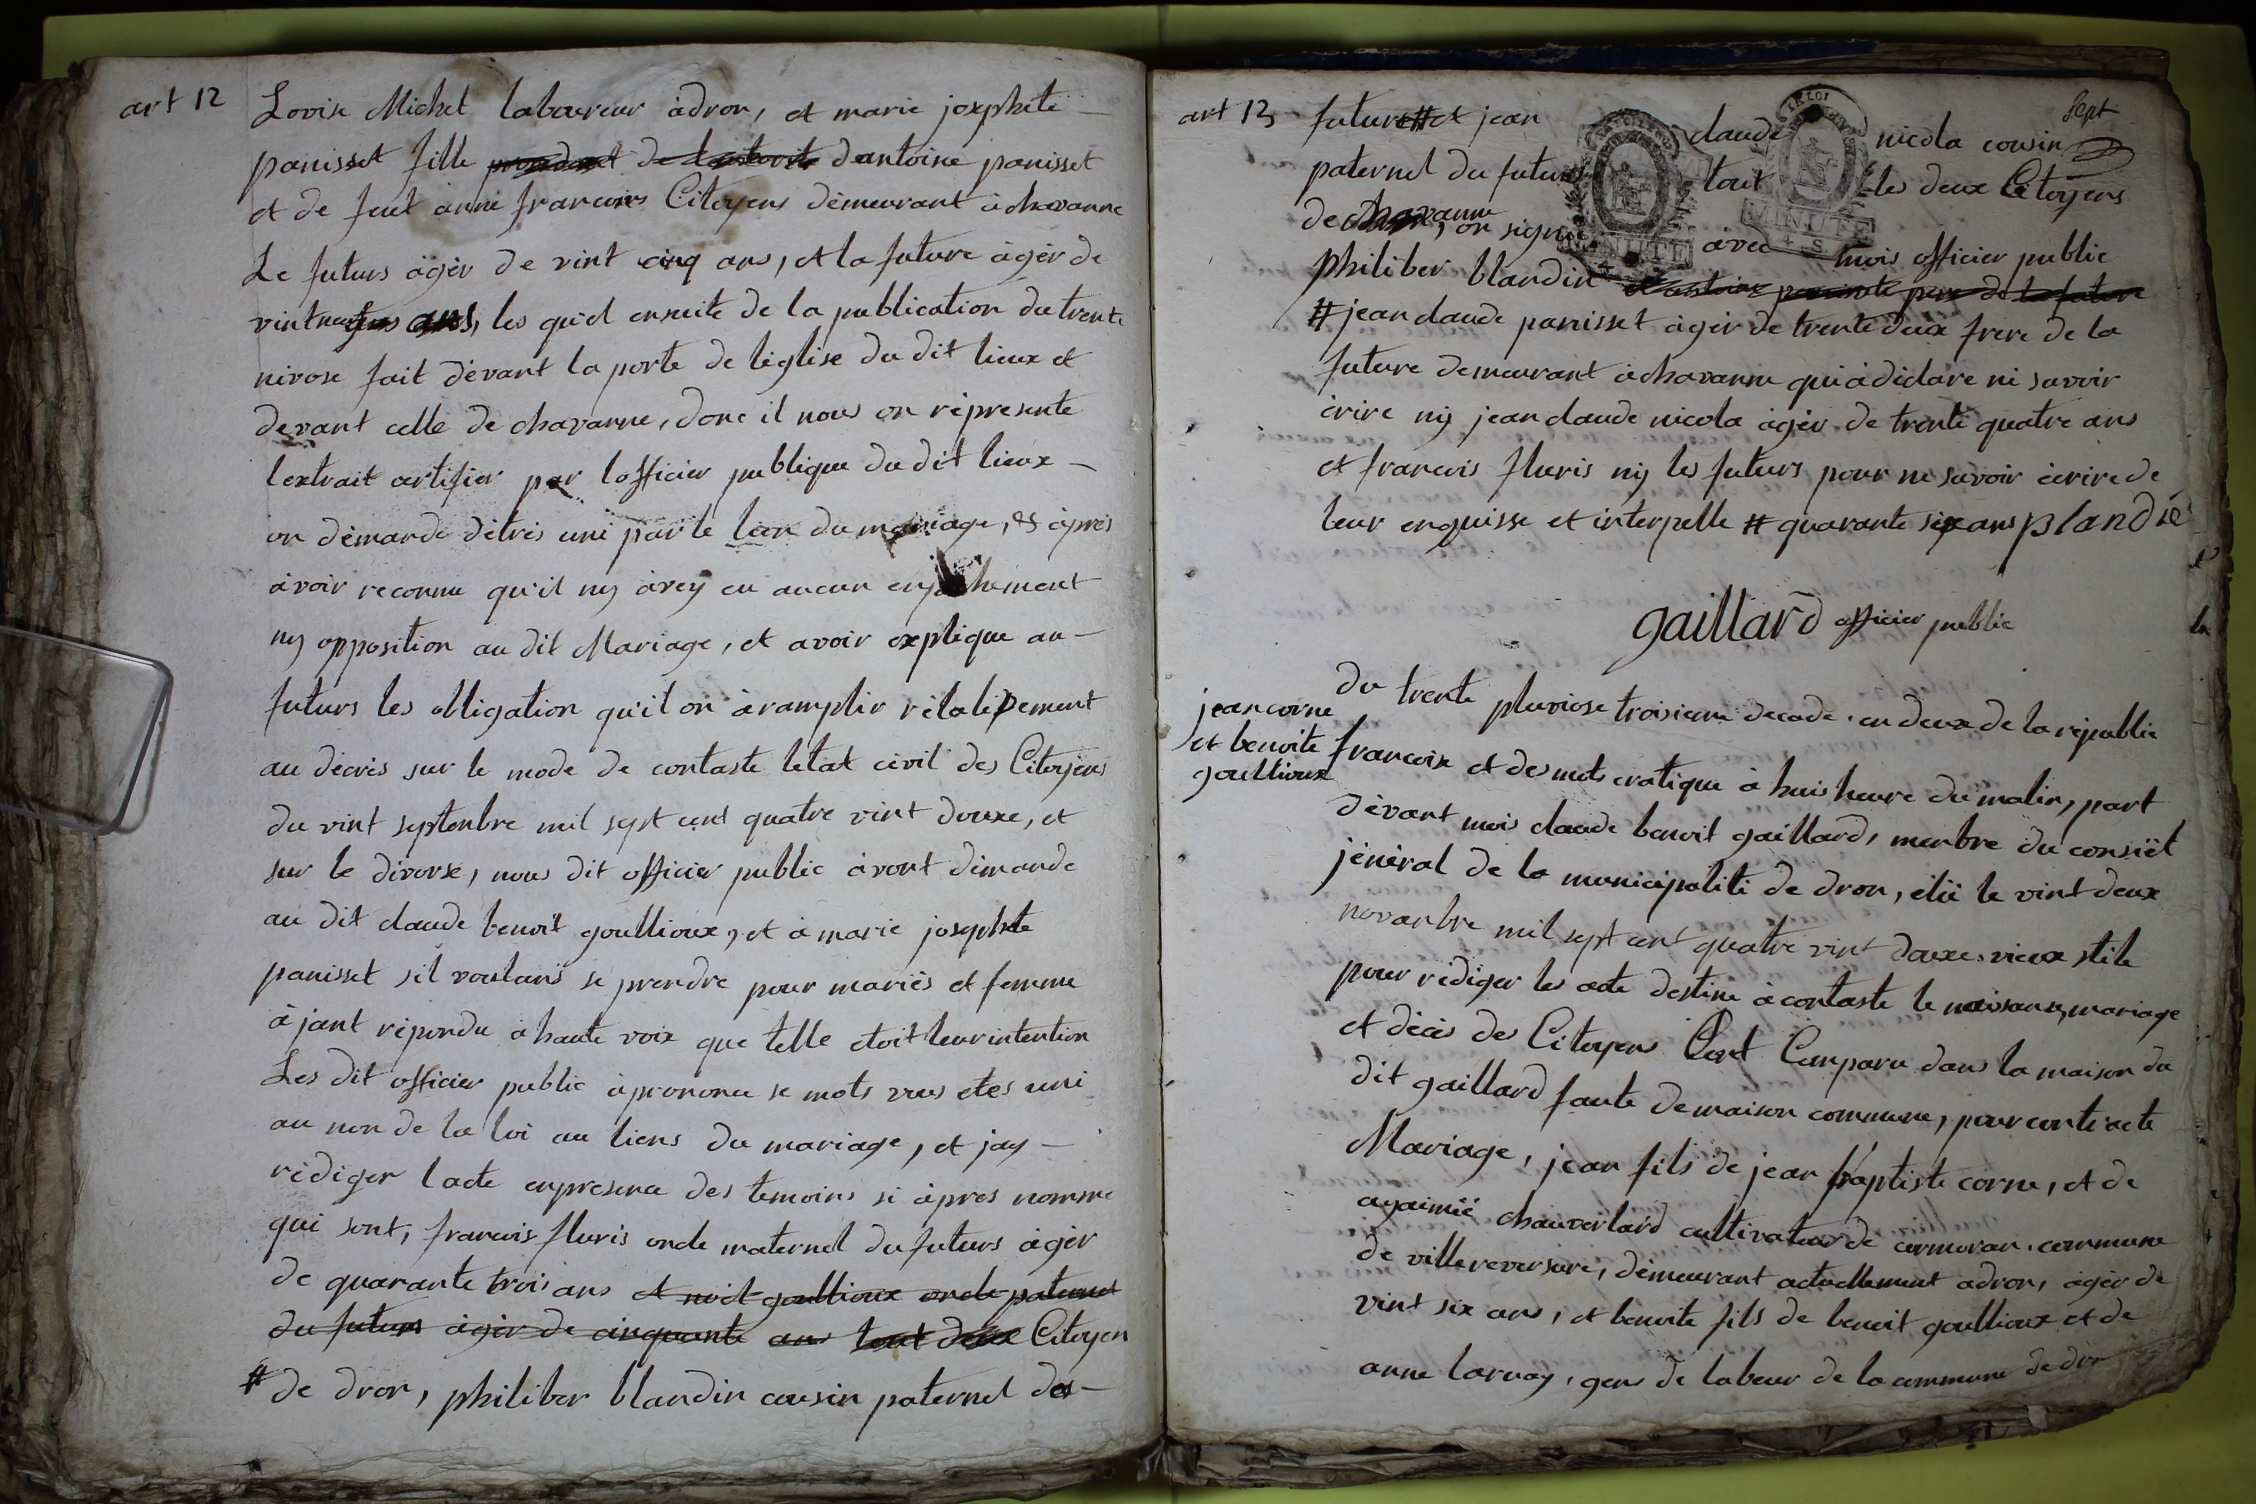 art 12
Lovise Michel laboureur àdron, et marie josephete
panisset fille de dantoine panisset
et de feut ànne francoirs Citoyens démeurant à chavanne
Le futurs àgér de vint cinq ans, et la future àgér de
vintneuf ans, les qu'el ensuite de la publication du trente
nivose fait dévant la porte de léglise du dit lieux et
devant celle de chavanne, donc il nous on réprésente
lextrait certifier par lofficier publique du dit lieux
on démande détrés uni par le lien du mariage, et àprés
àvoir reconnu qu'il ny àvey eu aucun enpechement
ny opposition au dit Mariage, et avoir explique au
futurs les obligation qu'il on àramplir rélativement
au décrés sur le mode de contaste létat civil des Citoyens
du vint septenbre mil sept cent quatre vint douxe, et
sur le divorse, nous dit officier public àvont démande
au dit claude benoit goullioux, et à marie josephte
panisset sil voulans se prendre pour mariés et femme
àjant répondu à haute voix que telle etoit leur intention
Les dit officier public àprononcé se mots vous etes uni
au non de la loi au liens du mariage, et jay
rédiger lacte enpresence des temoins si àpres nomme
qui sont, francois fluris oncle maternel du futurs àgér
de quarante trois ans et goullioux oncle paternel
du futurs àgér de cinquante ans tout deux Citoyen
# de dron, philiber blandin cousin paternel des
art 13
sept
future # et jean claude nicola cousin
paternel du futurs tout les deux Citoyens
de chavanne, on signé avec mois officier public
MINUTE
MINUTE
4 S
philiber blandin et antoine panisete pere de la future
# jean claude panisset àgér de trente deux frere de la
future demeurant à chavanne qui à déclare ni savoir
écrire ny jean claude nicola àgér de trente quatre ans
et francois fluris ny les futurs pour ne savoir écrire de
leur enquisse et interpelle # quarante six ans plandié
gaillard officier public
jean corne
et benoite
goullioux
du trente pluviose troisieme decade en deux de la républic
francoise et desmots cratique à huis heure du matin, part
dévant mois claude benoit gaillard, menbre du consiët
jénéral de la municipalité de dron, élü le vint deux
novanbre mil sept cent quatre vint douxe vieux stile
pour rédiger les acte destine à contaste le naissance, mariage
et décés des Citoyens Cont Comparu dans la maison du
dit gaillard faute de maison commune, pour contracte
Mariage, jean fils de jean baptiste corne, et de
ayaimïé chauverlard cultivateur de cormoran commune
de villereversure, démeurant actuellement adron, àgér de
vint six ans, et benoite fils de benoit goullioux et de
anne larnay, gens de labeur de la commune de dron